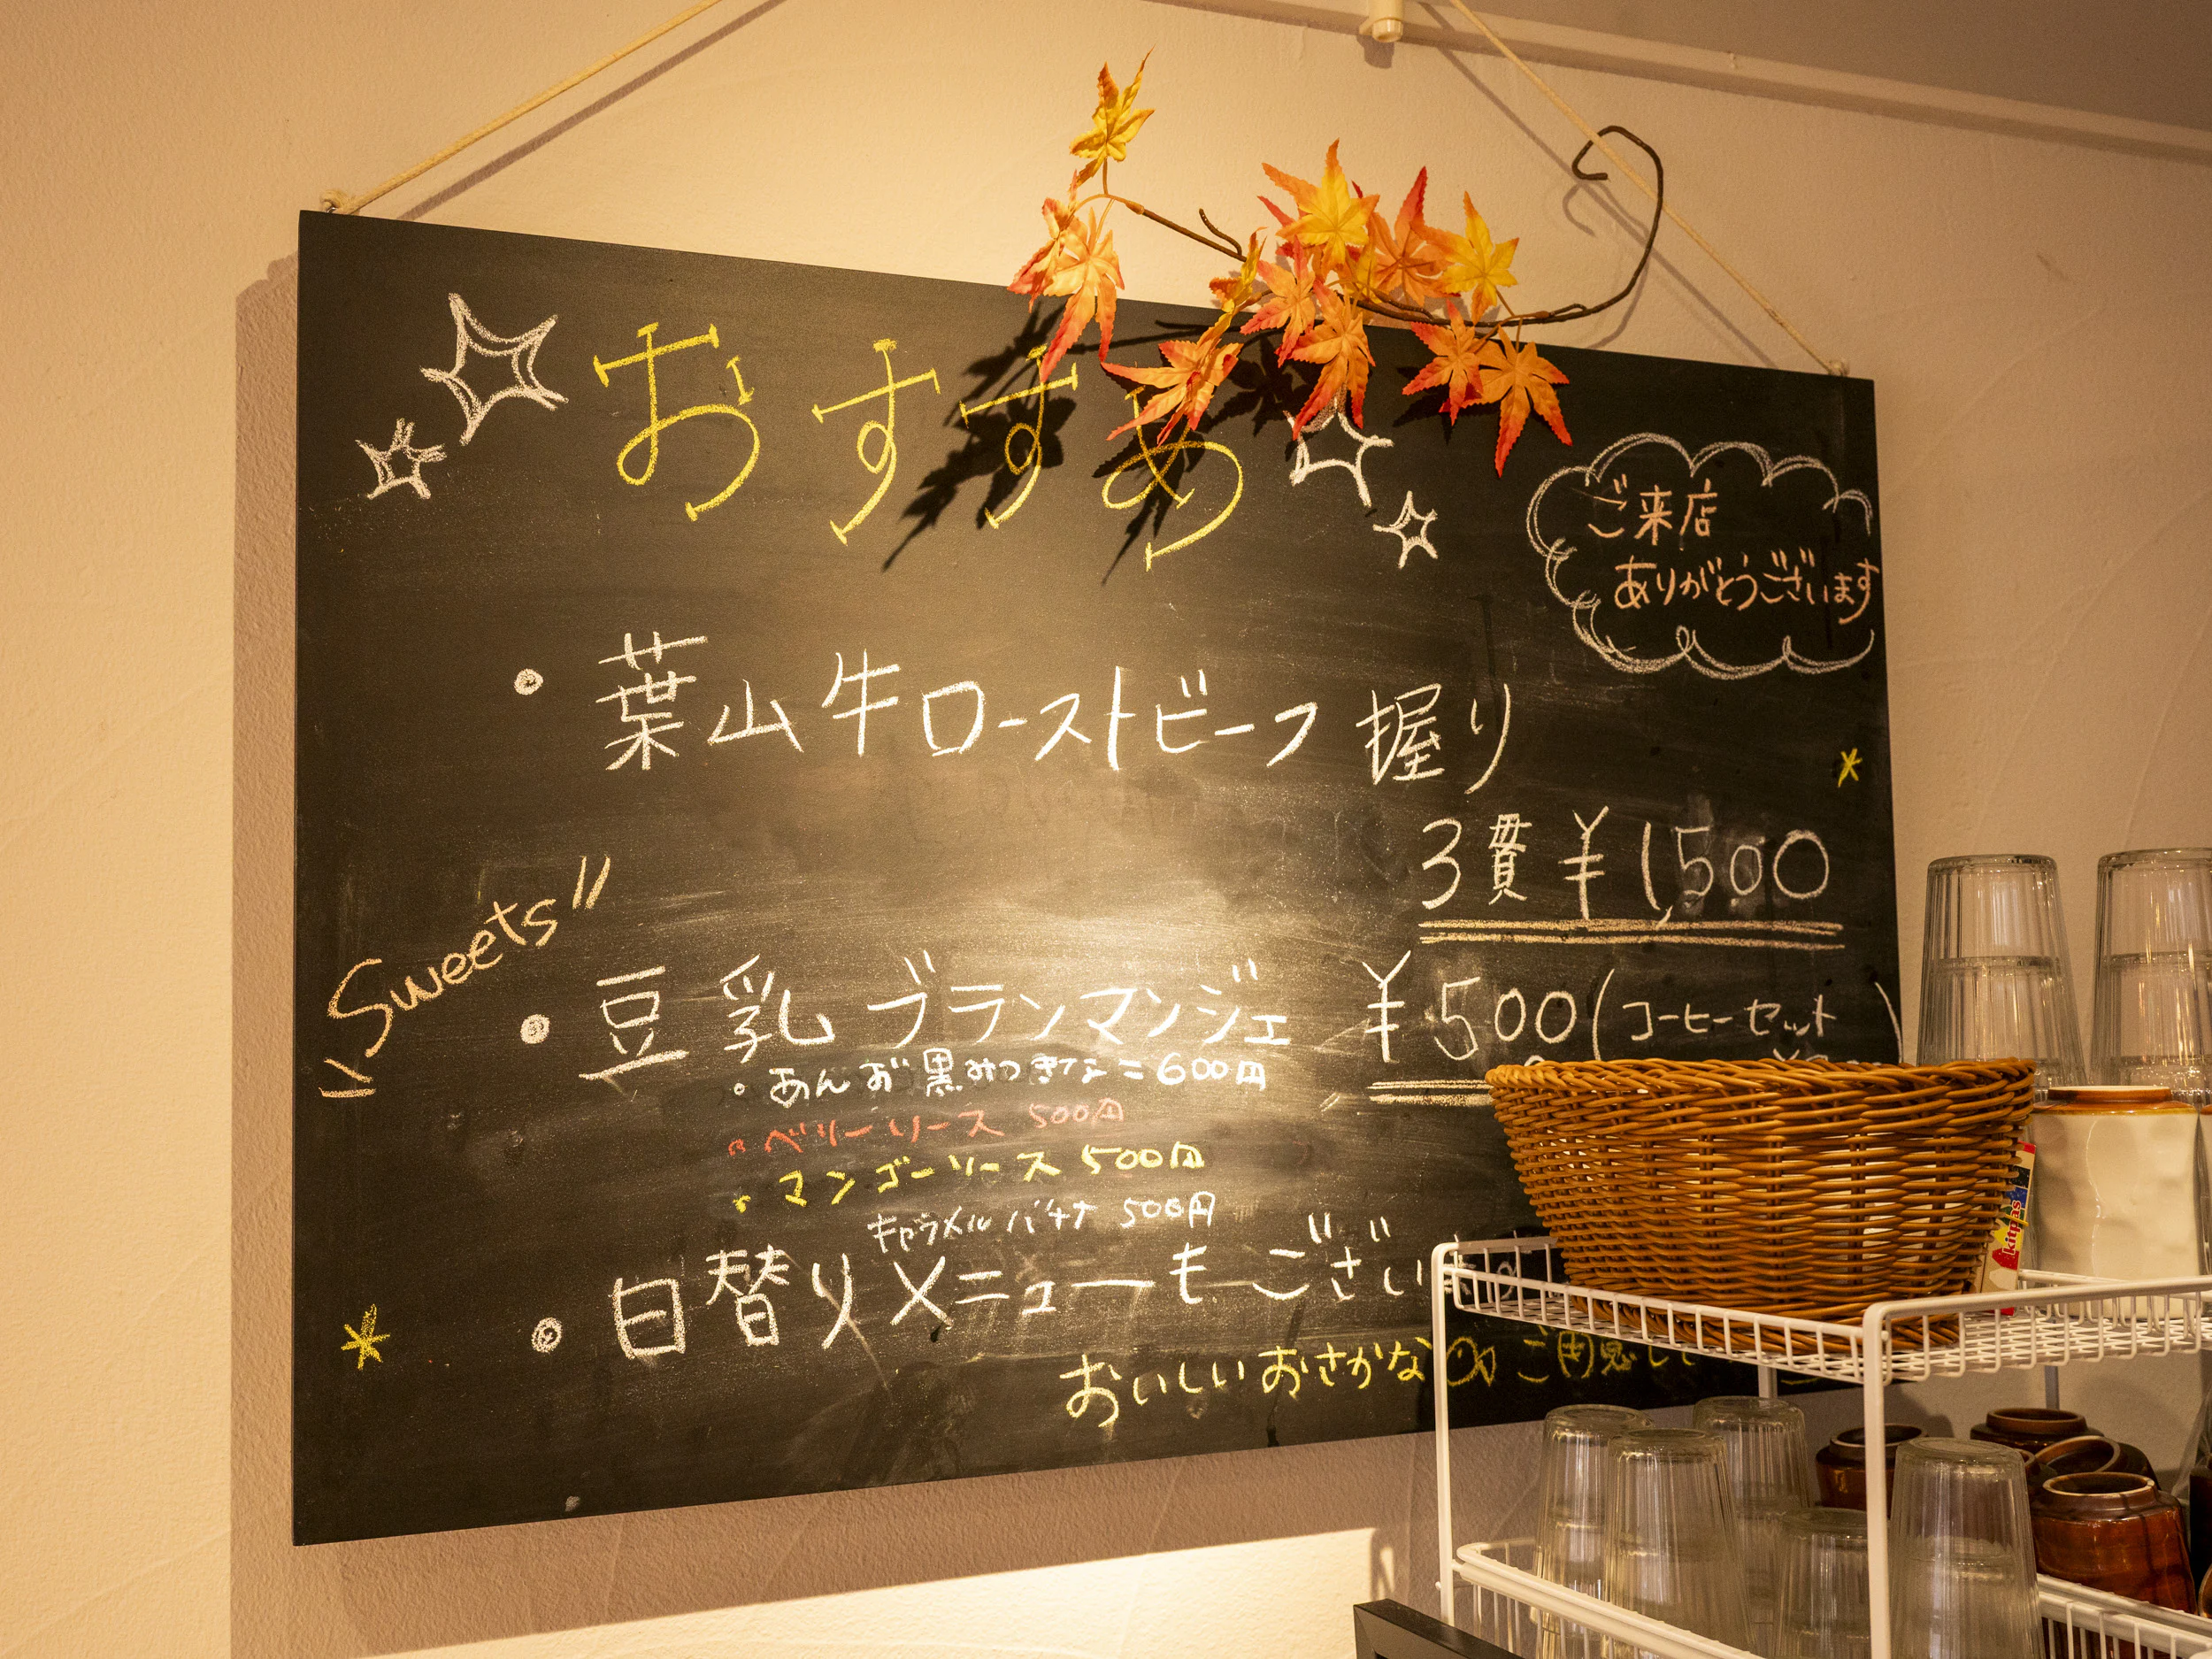 おすすめ
ご来店
ありがとうございます
・葉山牛ローストビーフ握り
3貫 ¥1,500
Sweets
・豆乳ブランマンジェ ¥500(コーヒーセット
・あんず黒みつきなこ 600円
・ベリーソース 500円
・マンゴーソース 500円
キャラメルバナナ 500円
・日替りメニューもござい
おいしいおさかな ご用意して
kitpas